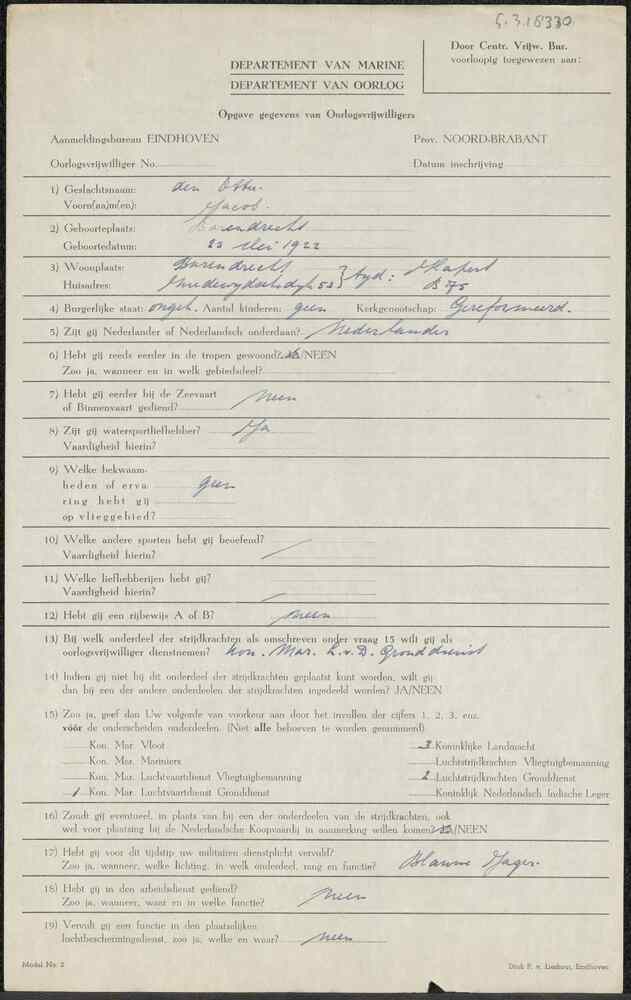 G.3.18330
Door Centr. Vrijw. Bur.
voorloopig toegewezen aan:
DEPARTEMENT VAN MARINE
DEPARTEMENT VAN OORLOG
Opgave gegevens van Oorlogsvrijwilligers
Aanmeldingsbureau EINDHOVEN Prov. NOORD-BRABANT
Oorlogsvrijwilliger No. Datum inschrijving
1) Geslachtsnaam: den Otter.
Voorn(aa)m(en): Jacob.
2) Geboorteplaats: Barendrecht
Geboortedatum: 23 Mei 1922
3) Woonplaats: Barendrecht } tyd:
Huisadres: 53 B 75
4) Burgerlijke staat: ongeh. Aantal kinderen: geen Kerkgenootschap: Gereformeerd.
5) Zijt gij Nederlander of Nederlandsch onderdaan? Nederlander
6) Hebt gij reeds eerder in de tropen gewoond? JA/NEEN
Zoo ja, wanneer en in welk gebiedsdeel?
7) Hebt gij eerder bij de Zeevaart neen
of Binnenvaart gediend?
8) Zijt gij watersportliefhebber? Ja
Vaardigheid hierin?
9) Welke bekwaam-
heden of erva- geen
ring hebt gij
op vlieggebied?
10) Welke andere sporten hebt gij beoefend?
Vaardigheid hierin?
11) Welke liefhebberijen hebt gij?
Vaardigheid hierin?
12) Hebt gij een rijbewijs A of B? neen
13) Bij welk onderdeel der strijdkrachten als omschreven onder vraag 15 wilt gij als
oorlogsvrijwilliger dienstnemen? Kon. Mar. L.v.D. Gronddienst
14) Indien gij niet bij dit onderdeel der strijdkrachten geplaatst kunt worden, wilt gij
dan bij een der andere onderdeelen der strijdkrachten ingedeeld worden? JA/NEEN
15) Zoo ja, geef dan Uw volgorde van voorkeur aan door het invullen der cijfers 1, 2, 3, enz.
vóór de onderscheiden onderdeelen. (Niet alle behoeven te worden genummerd).
Kon. Mar. Vloot 3 Koninklijke Landmacht
Kon. Mar. Mariniers Luchtstrijdkrachten Vliegtuigbemanning
Kon. Mar. Luchtvaartdienst Vliegtuigbemanning 2 Luchtstrijdkrachten Gronddienst
1 Kon. Mar. Luchtvaartdienst Gronddienst Koninklijk Nederlandsch Indische Leger
16) Zoudt gij eventueel, in plaats van bij een der onderdeelen van de strijdkrachten, ook
wel voor plaatsing bij de Nederlandsche Koopvaardij in aanmerking willen komen? JA/NEEN
17) Hebt gij voor dit tijdstip uw militairen dienstplicht vervuld?
Zoo ja, wanneer, welke lichting, in welk onderdeel, rang en functie? Blauwe Jager.
18) Hebt gij in den arbeidsdienst gediend?
Zoo ja, wanneer, waar en in welke functie? neen
19) Vervult gij een functie in den plaatselijken
luchtbeschermingsdienst, zoo ja, welke en waar? neen
Model No. 2 Druk F. v. Lieshout, Eindhoven